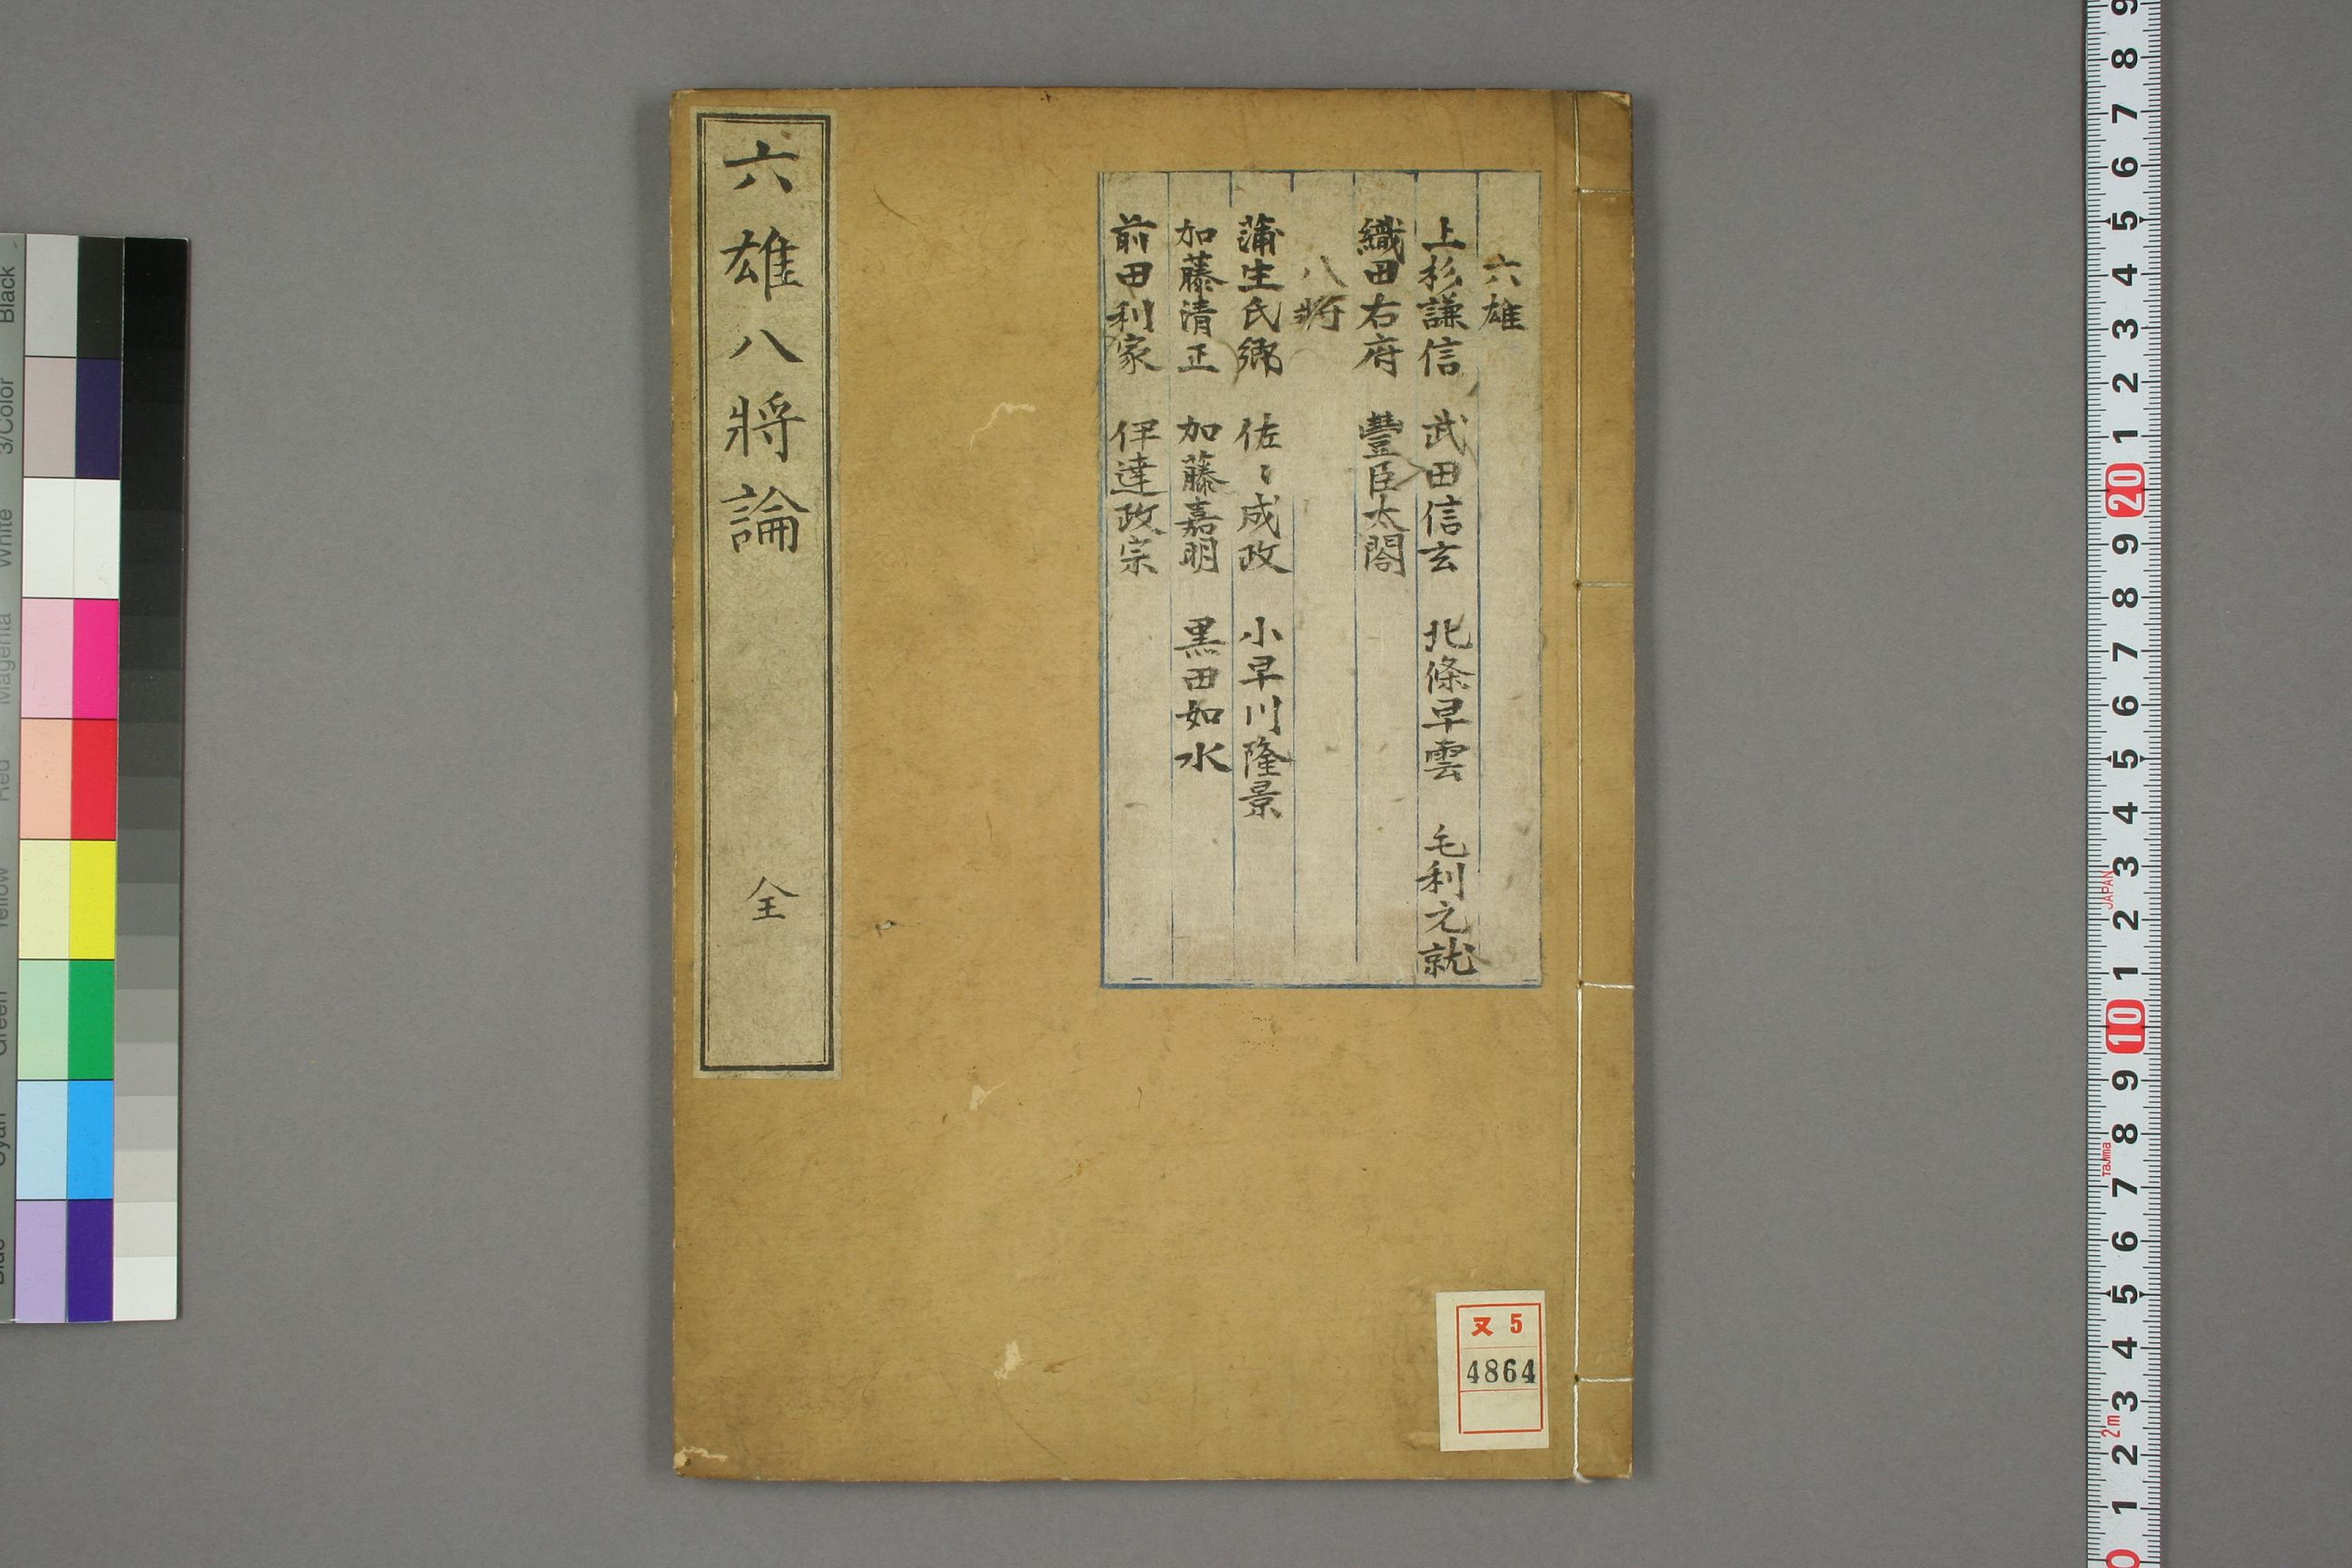 六雄
上杉謙信 武田信玄 北條早雲 毛利元就
織田右府 豐臣太閤
八將
蒲生氏鄉 佐〻成政 小早川隆景
加藤清正 加藤嘉明 黒田如水
前田利家 伊達政宗
六雄八將論 全
又 5
4864
Black
3/Color
White
Magenta
Red
Yellow
Green
Cyan
Blue
9
8
7
6
5
4
3
2
1
20
9
8
7
6
5
4
3
2
1
10
9
8
7
6
5
4
3
2
1
0
JAPAN
Tajima
2m